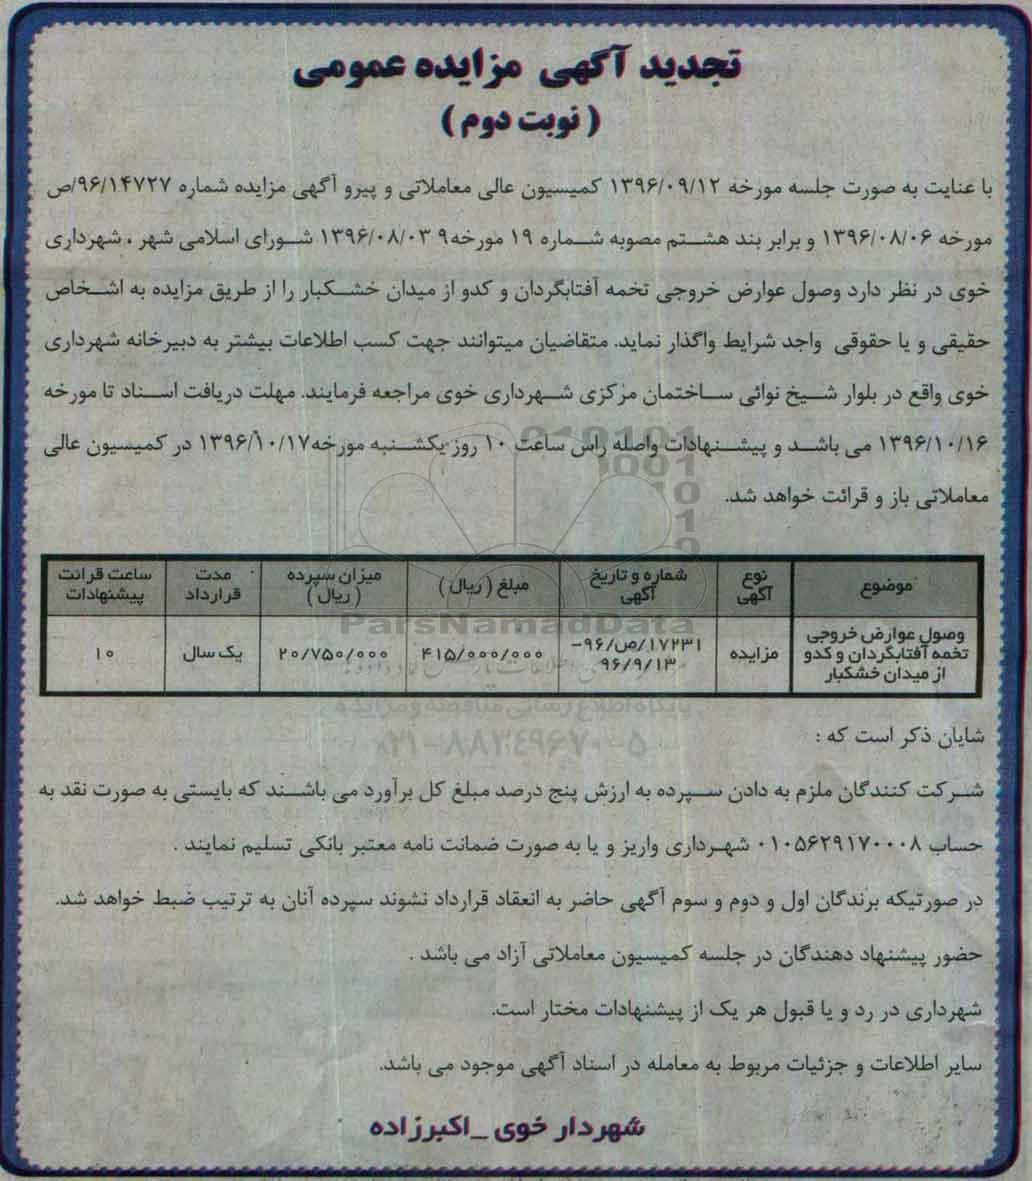 تجدید آگهی مزایده عمومی
( نوبت دوم )
با عنایت به صورت جلسه مورخه ۱۳۹۶/۰۹/۱۲ کمیسیون عالی معاملاتی و پیرو آگهی مزایده شماره ۹۶/۱۴۷۲۷/ص
مورخه ۱۳۹۶/۰۸/۰۶ و برابر بند هشتم مصوبه شماره ۱۹ مورخه۹ ۱۳۹۶/۰۸/۰۳ شورای اسلامی شهر ، شهرداری
خوی در نظر دارد وصول عوارض خروجی تخمه آفتابگردان و کدو از میدان خشکبار را از طریق مزایده به اشخاص
حقیقی و یا حقوقی واجد شرایط واگذار نماید. متقاضیان میتوانند جهت کسب اطلاعات بیشتر به دبیرخانه شهرداری
خوی واقع در بلوار شیخ نوائی ساختمان مرکزی شهرداری خوی مراجعه فرمایند. مهلت دریافت اسناد تا مورخه
۱۳۹۶/۱۰/۱۶ می باشد و پیشنهادات واصله راس ساعت ۱۰ روز یکشنبه مورخه۱۳۹۶/۱۰/۱۷ در کمیسیون عالی
معاملاتی باز و قرائت خواهد شد.
موضوع
نوع آگهی
شماره و تاریخ آگهی
مبلغ ( ریال )
میزان سپرده ( ریال )
مدت قرارداد
ساعت قرائت پیشنهادات
وصول عوارض خروجی
تخمه آفتابگردان و کدو
از میدان خشکبار
مزایده
۱۷۲۳۱/ص/۹۶-
۹۶/۹/۱۳
۴۱۵/۰۰۰/۰۰۰
۲۰/۷۵۰/۰۰۰
یک سال
۱۰
ParsNamadData
پایگاه اطلاع رسانی مناقصه و مزایده
۰۲۱-۸۸۳۴۹۶۷۰-۵
شایان ذکر است که :
شرکت کنندگان ملزم به دادن سپرده به ارزش پنج درصد مبلغ کل برآورد می باشند که بایستی به صورت نقد به
حساب ۰۱۰۵۶۲۹۱۷۰۰۰۸ شهرداری واریز و یا به صورت ضمانت نامه معتبر بانکی تسلیم نمایند .
در صورتیکه برندگان اول و دوم و سوم آگهی حاضر به انعقاد قرارداد نشوند سپرده آنان به ترتیب ضبط خواهد شد.
حضور پیشنهاد دهندگان در جلسه کمیسیون معاملاتی آزاد می باشد .
شهرداری در رد و یا قبول هر یک از پیشنهادات مختار است.
سایر اطلاعات و جزئیات مربوط به معامله در اسناد آگهی موجود می باشد.
شهردار خوی _اکبرزاده